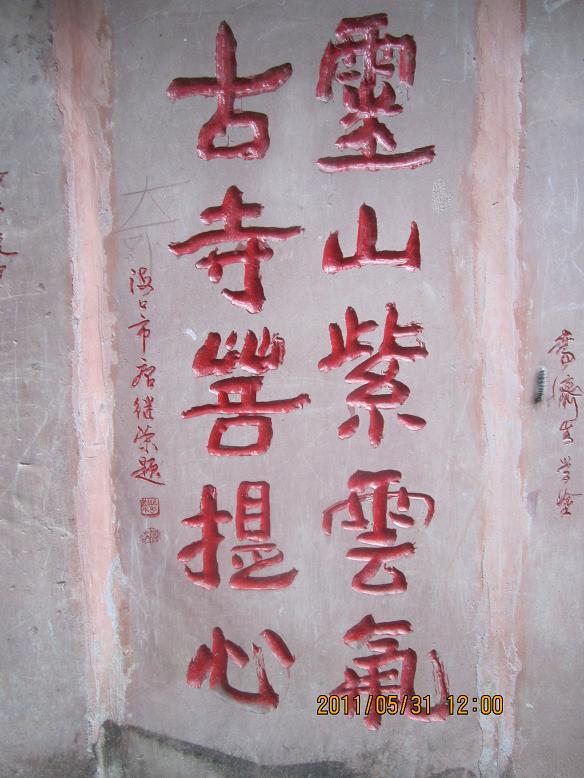 靈山紫雲氣
古寺菩提心
海口市唐继荣题
2011/05/31 12:00